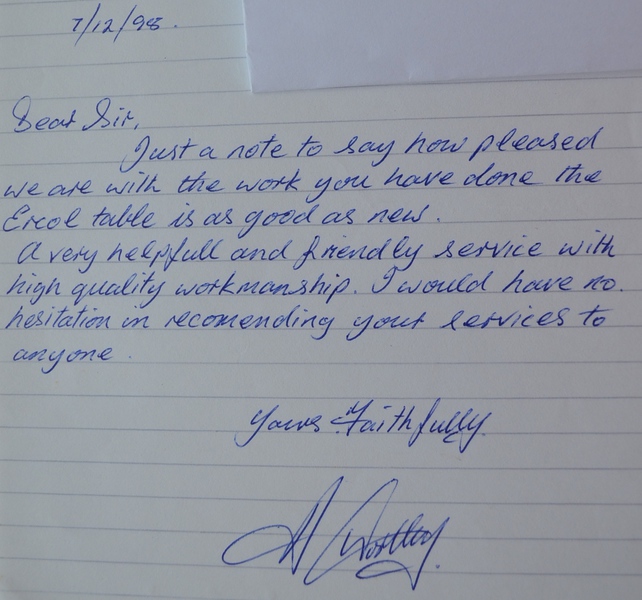 7/12/98.
Dear Sir,
Just a note to say how pleased
we are with the work you have done the
Ercol table is as good as new.
A very helpfull and friendly service with
high quality workmanship. I would have no.
hesitation in recomending your services to
anyone.
Yours Faithfully.